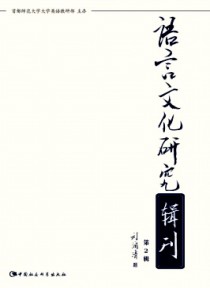 首都师范大学文学院语教研部 主办
語言文化研究
輯刊
第2輯
刘润清 题
中国社会科学出版社